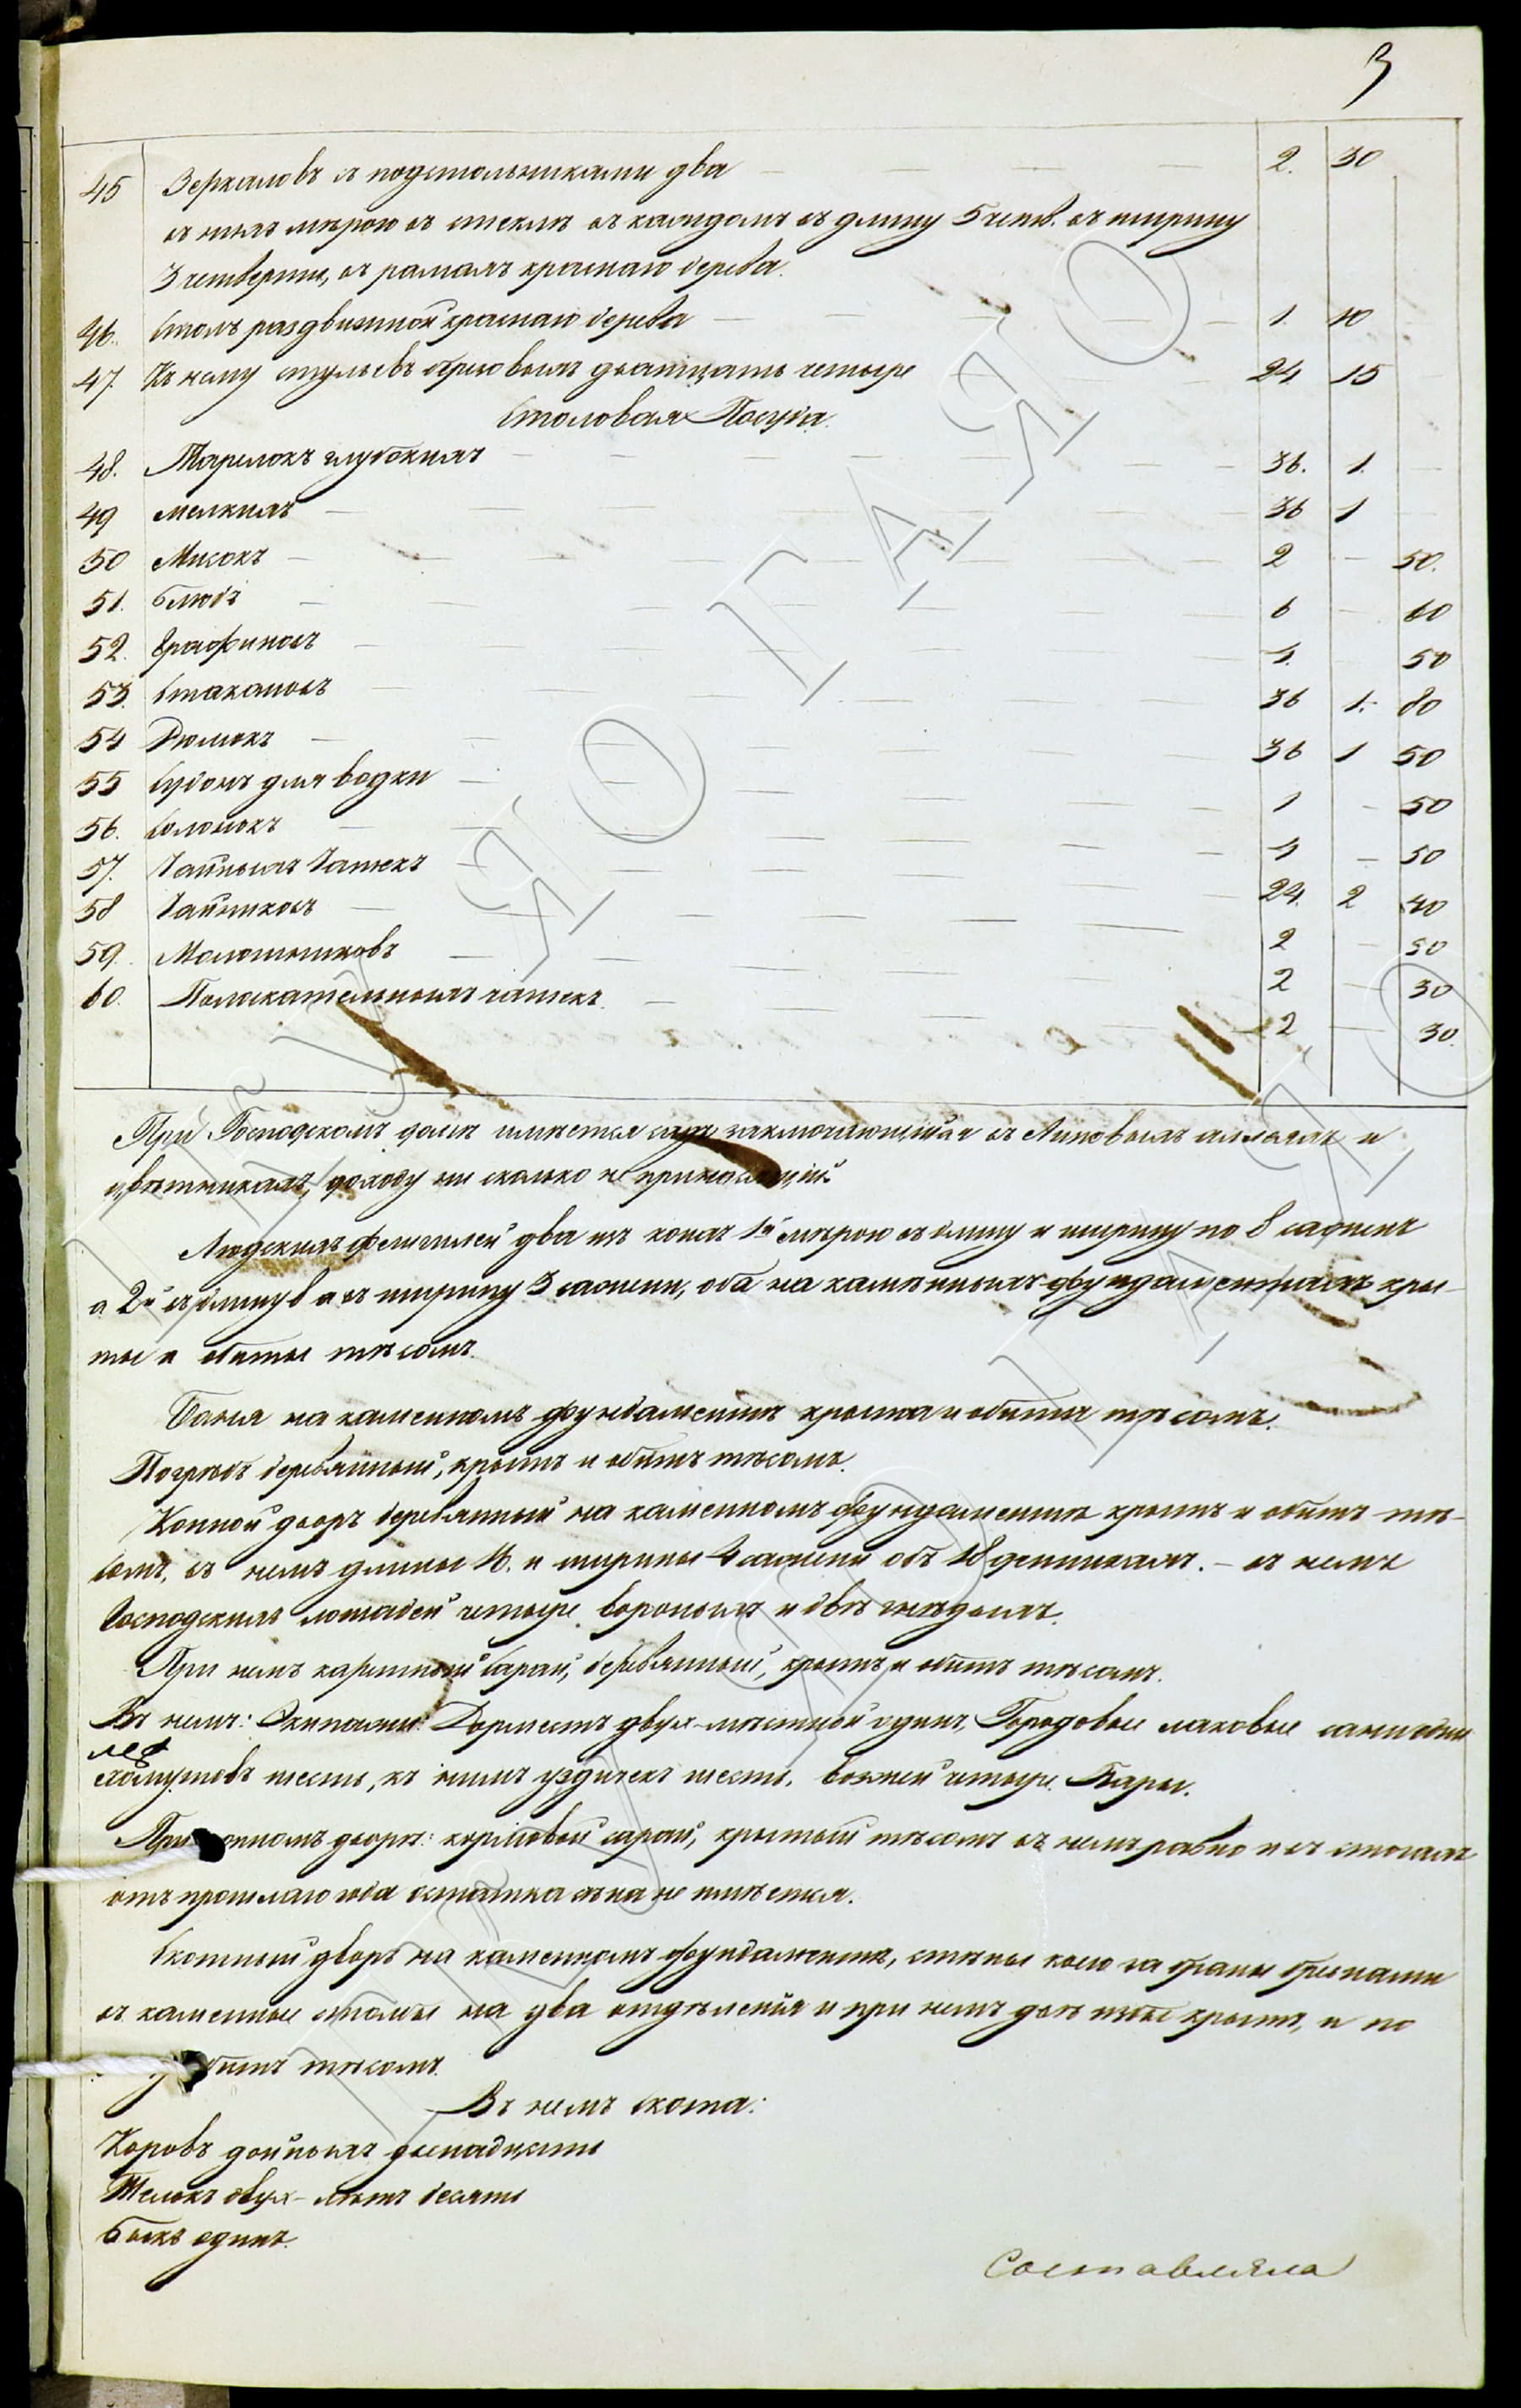 3
45 Зеркаловъ съ подстольниками два 2. 30
въ нихъ мѣрою въ стеклѣ въ каждомъ въ длину 5 четв. въ ширину
3 четверти, въ рамахъ краснаго дерева.
46. Столъ раздвижной краснаго дерева 1. 10
47. Къ нему стульевъ орѣховыхъ двадцать четыре 24 15
Столовая Посуда.
48. Тарелокъ глубокихъ 36. 1.
49 мелкихъ 36 1
50 Мисокъ 2 — 50.
51. Блюдъ 6 — 60
52. Графиновъ 50
53. Стакановъ 36 1. 80
54 Рюмокъ 36 1 50
55 Судокъ для водки 1 — 50
56. Солонокъ — 50
57. Чайныхъ Чашекъ 24. 2 40
58 Чайниковъ 2 — 50
59. Молошниковъ 2 — 30
60. Полоскательныхъ чашекъ. 2 — 30.
При Господскомъ домѣ имѣется садъ заключающійся въ Липовыхъ аллеяхъ и
цвѣтникахъ, доходу ни сколько не приносящій.
Людскихъ флигилей два изъ коихъ 1й мѣрою въ длину и ширину по 8 саженъ
а 2й въ длину 6 а въ ширину 3 сажени, оба на каменныхъ фундаментахъ кры-
ты и обиты тѣсомъ.
Баня на каменномъ фундаментѣ крыта и обита тѣсомъ.
Погребъ деревянный, крытъ и обитъ тѣсомъ.
Конной дворъ деревянный на каменномъ фундаментѣ крытъ и обитъ тѣ-
сомъ, въ немъ длины 16. и ширины 4 сажени объ 18 денникахъ. — въ немъ
Господскихъ лошадей четыре вороныхъ и двѣ гнѣдыхъ.
При немъ каретный сарай, деревянный, крытъ и обитъ тѣсомъ.
Въ немъ: Экипажи: Дорместъ двух-мѣстной одинъ, Городовые лаковые сани одни
хомутовъ шесть, къ нимъ уздичекъ шесть, вожжей четыре Пары.
При онномъ дворѣ: кормовой сарай, крытый тѣсомъ въ немъ равно и въ стогахъ
отъ прошлаго года остатка сѣна не имѣется.
Скотный дворъ на каменномъ фундаментѣ, стѣны коего забраны бревнами
въ каменные столбы на два отдѣленія и при немъ двѣ избы крытъ, и по
битъ тѣсомъ.
Въ немъ скота:
Коровъ дойныхъ двенадцать
Телокъ двух-лѣтъ десять
Быкъ одинъ.
Составляла